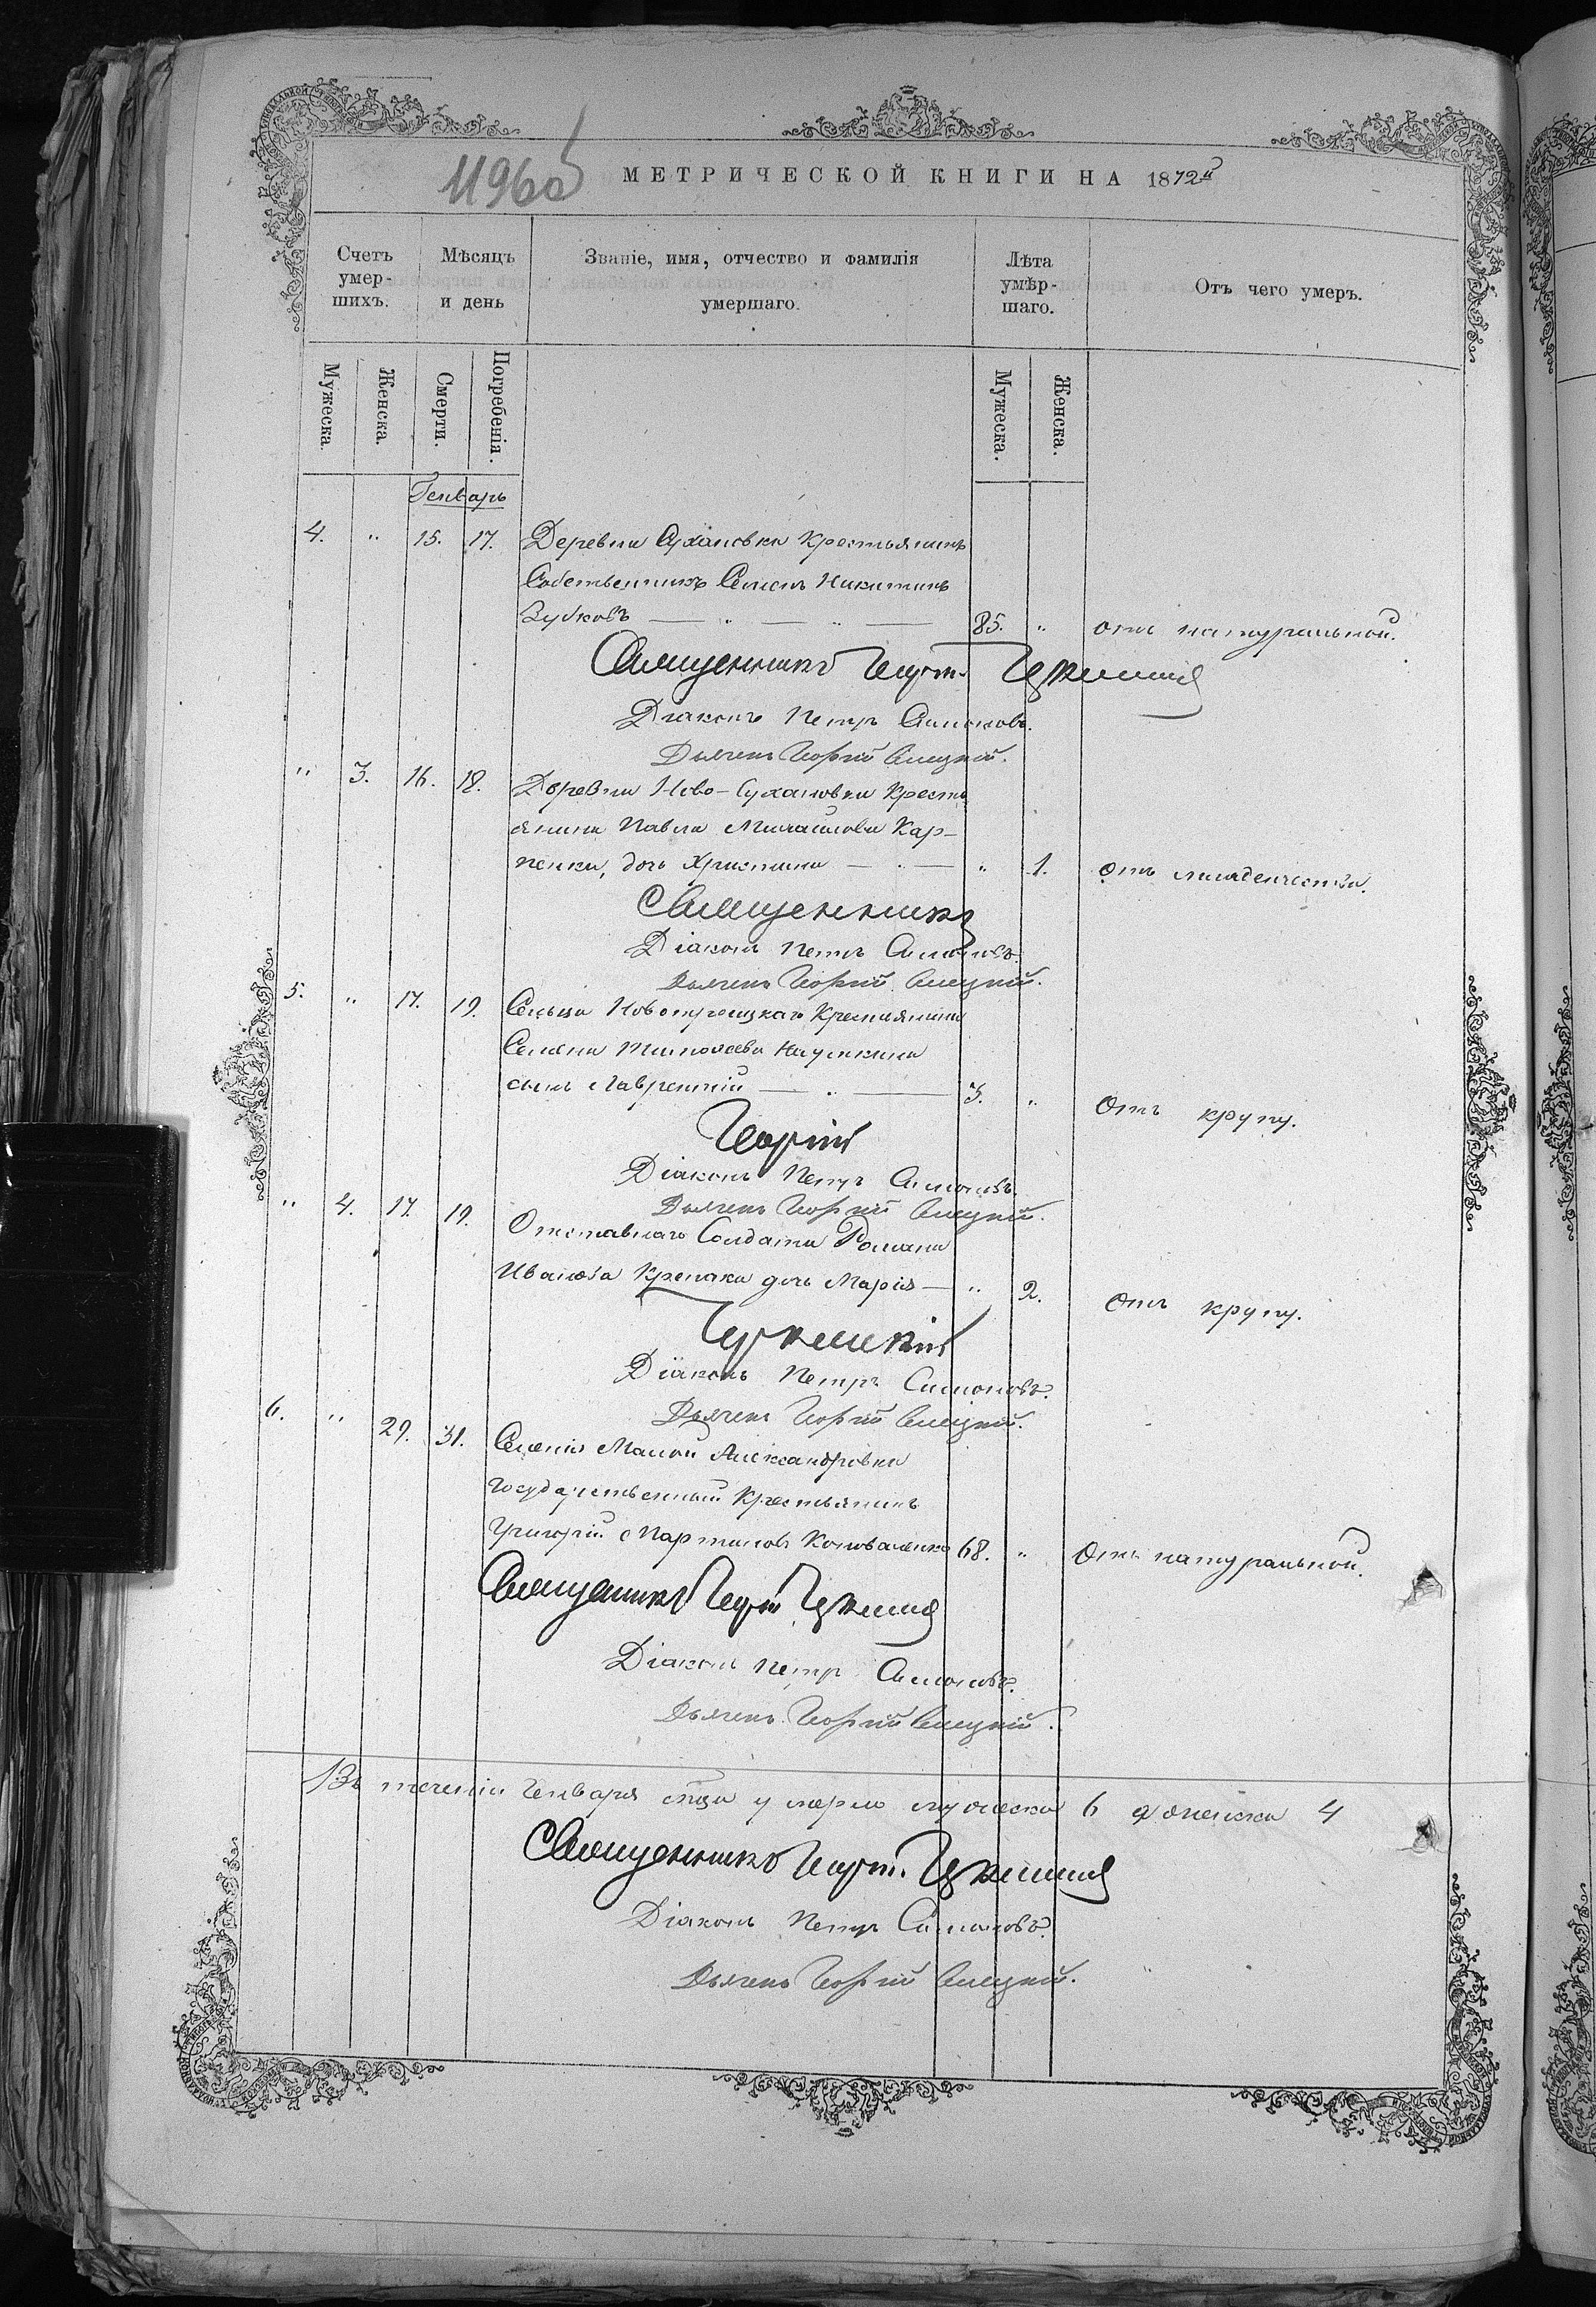 1196об
МЕТРИЧЕСКОЙ КНИГИ НА 1872й
Счетъ умер-шихъ.
Мѣсяцъ и день
Званіе, имя, отчество и фамилія умершаго.
Лѣта умѣр-шаго.
Отъ чего умеръ.
Мужеска.
Женска.
Смерти.
Погребенія.
Мужеска.
Женска.
Генварь
4. " 15. 17. Деревни Сухановки Крестьянинъ
Собственникъ Семенъ Никитинъ
Зубковъ 85. " отъ натуральной.
Священникъ Георгій
Діаконъ Петръ Симоновъ.
Дьячекъ Георгій
" 3. 16. 18. Деревни Ново-Сухановки Кресть
янина Павла Михайлова Кар-
пенки, дочь Христина " 1. отъ младенчества.
Священникъ
Діаконъ Петръ Симоновъ.
Дьячекъ Георгій
5. " 17. 19. Сельца Новотроицкаго Крестьянина
Семена Тимофеева Наумкина
сынъ Лаврентій 3. " Отъ крупу.
Георгій
Діаконъ Петръ Симоновъ.
Дьячекъ Георгій
" 4. 17. 19. Отставнаго Солдата Романа
Иванова дочь Марія " 2. Отъ крупу.
Діаконъ Петръ Симоновъ.
Дьячекъ Георгій
6. " 29. 31. Селенія Малой Александровки
государственный Крестьянинъ
Григорій Мартиновъ Коноваленко 68. " Отъ натуральной.
Священникъ Георгій
Діаконъ Петръ Симоновъ.
Дьячекъ Георгій
Въ теченіи Генваря мца умерло мужеска 6 женска 4
Священникъ Георгій
Діаконъ Петръ Симоновъ.
Дьячекъ Георгій